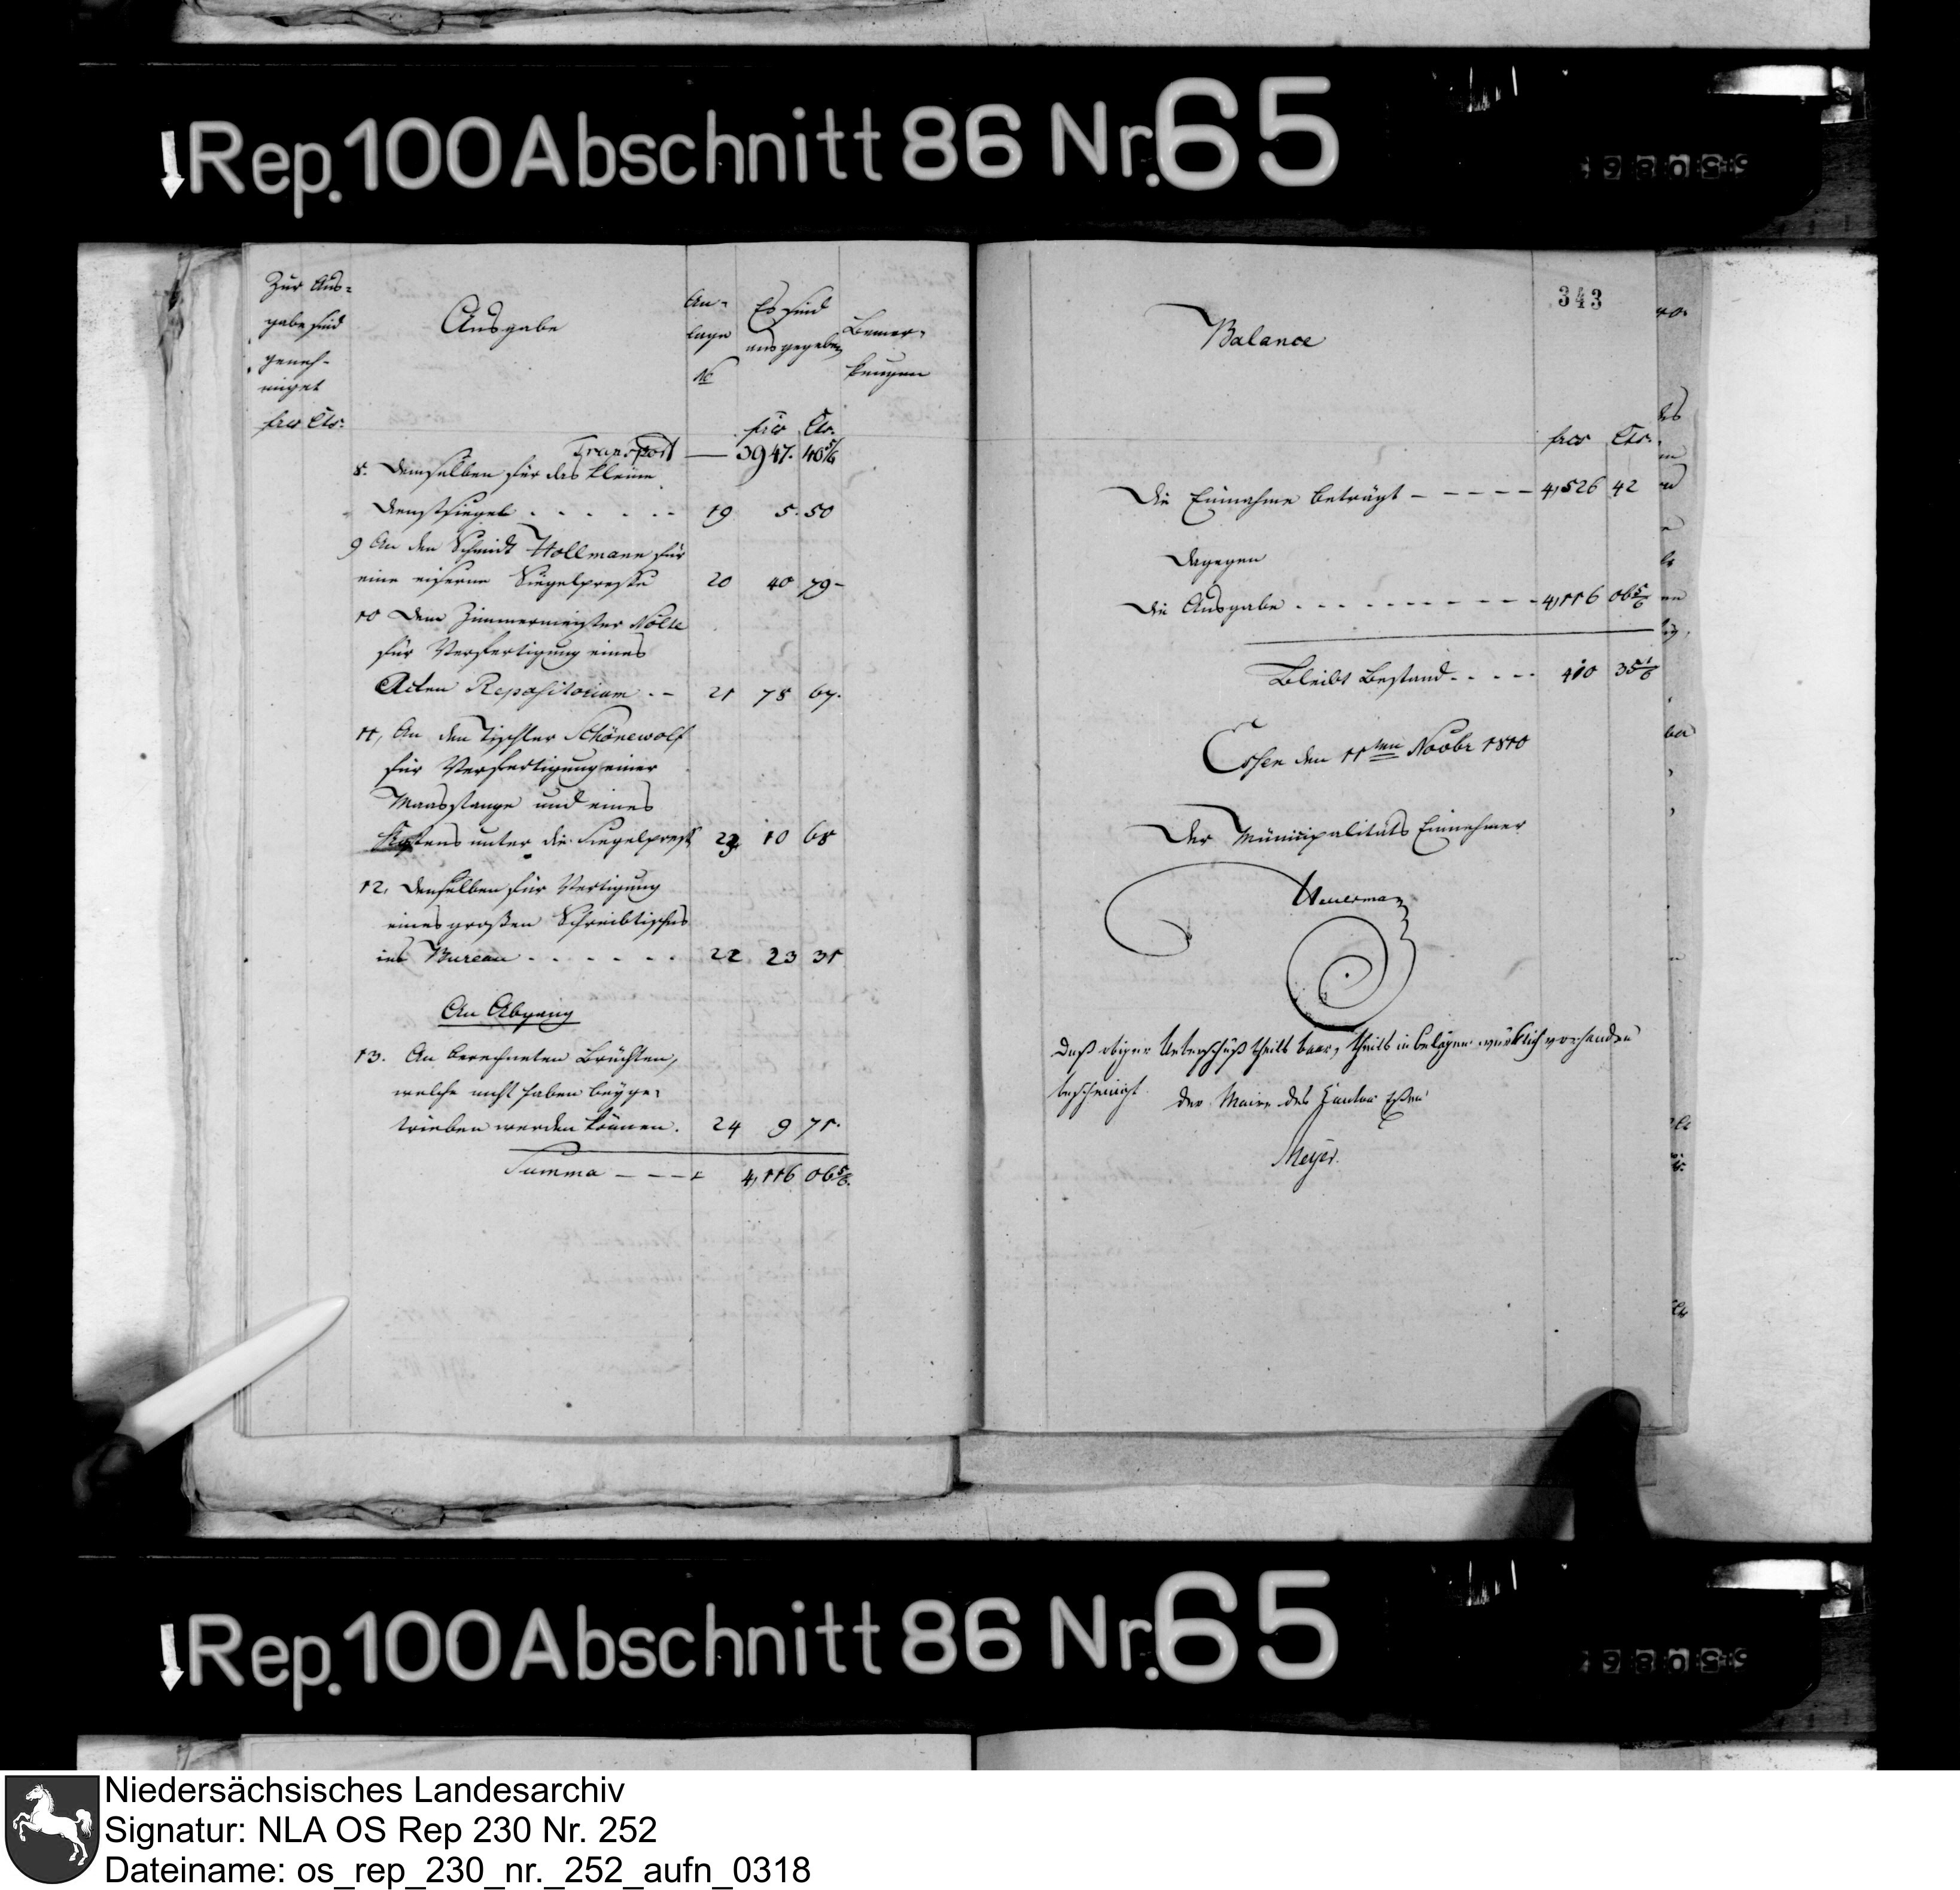 Rep. 100 Abschnitt 86 Nr. 65
Zur Aus-
gabe sind
geneh-
miget
frcs Cts.
Ausgabe
An-
lage
No
Es sind
ausgegeben
frcs Cts.
Bemer-
kungen
Transport — 3947. 40 5/6
8. Demselben für das kleine
Dienstsiegel . . . . . . 19 5. 50
9 An den Schmidt Hollmann für
eine eiserne Siegelpresse 20 40 79-
10 Dem Zimmermeister Nölle
für Verfertigung eines
Acten Repositorium . - 21 78 67.
11, An den Tischler Schönewolf
für Verfertigung einer
Maasstange und eines
unter die Siegelpresse 23 10 68
12, Denselben für Vertigung
eines großen Schreibtisches
ins Bureau . . . . . . 22 23 31
An Abgang
13. An berechneten Brüchten,
welche nicht haben beyge-
trieben werden können. 24 9 71.
Summa - - - 4,116 06 5/6.
343
Balance
frcs Cts.
Die Einnahme beträgt - - - - - 4,526 42
Dagegen
Die Ausgabe . . . - - - - - - - 4,116 06 5/6
Bleibt Bestand . . - - - 410 35 1/6
Essen den 11ten Novbr 1810
Der Municipalitäts Einnehmer
Heuerman
Daß obiger Ueberschuß theils baar, theils in belägen würklich vorhanden
bescheinigt
der Maire des Canton Essen
Meyer.
Rep. 100 Abschnitt 86 Nr. 65
Niedersächsisches Landesarchiv
Signatur: NLA OS Rep 230 Nr. 252
Dateiname: os_rep_230_nr._252_aufn_0318